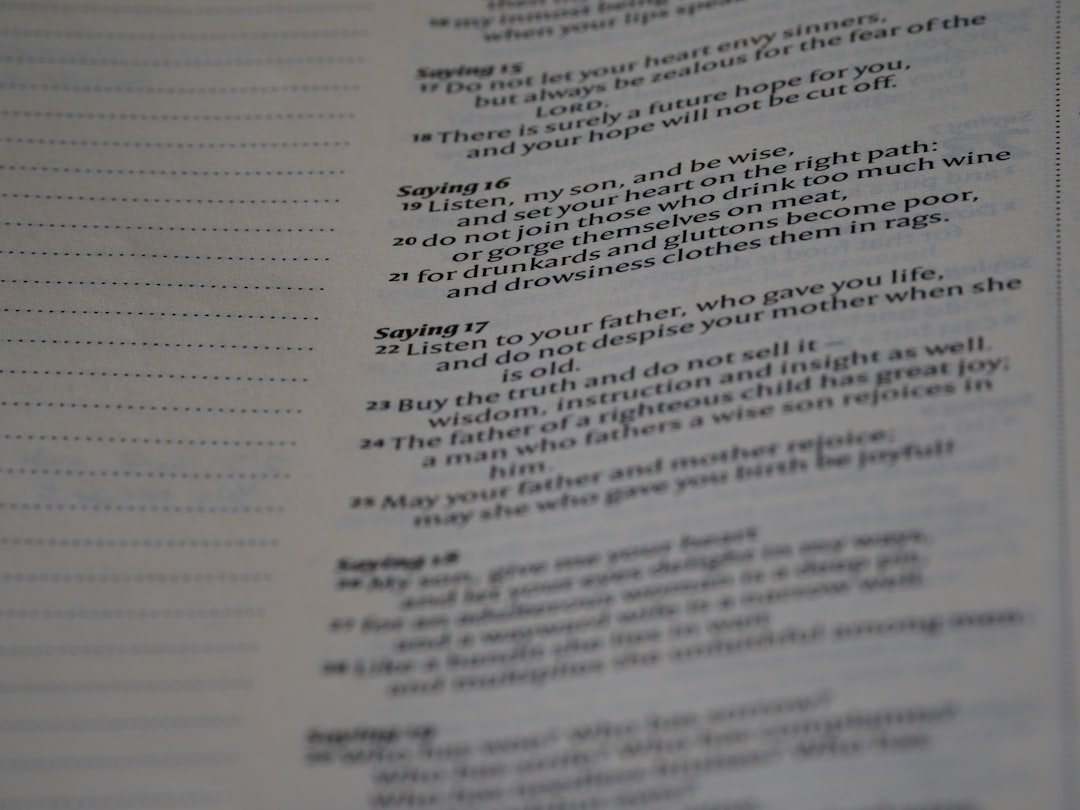 16 my inmost being
when your lips speak
Saying 15
17 Do not let your heart envy sinners,
but always be zealous for the fear of the
LORD.
18 There is surely a future hope for you,
and your hope will not be cut off.
Saying 16
19 Listen, my son, and be wise,
and set your heart on the right path:
20 do not join those who drink too much wine
or gorge themselves on meat,
21 for drunkards and gluttons become poor,
and drowsiness clothes them in rags.
Saying 17
22 Listen to your father, who gave you life,
and do not despise your mother when she
is old.
23 Buy the truth and do not sell it –
wisdom, instruction and insight as well.
24 The father of a righteous child has great joy;
a man who fathers a wise son rejoices in
him.
25 May your father and mother rejoice;
may she who gave you birth be joyful!
Saying 18
26 My son, give me your heart
and let your eyes delight in my ways,
27 for an adulterous woman is a deep pit,
and a wayward wife is a narrow well.
28 Like a bandit she lies in wait
and multiplies the unfaithful among men.
Saying 19
29 Who has woe? Who has sorrow?
Who has strife? Who has complaints?
Who has needless bruises? Who has